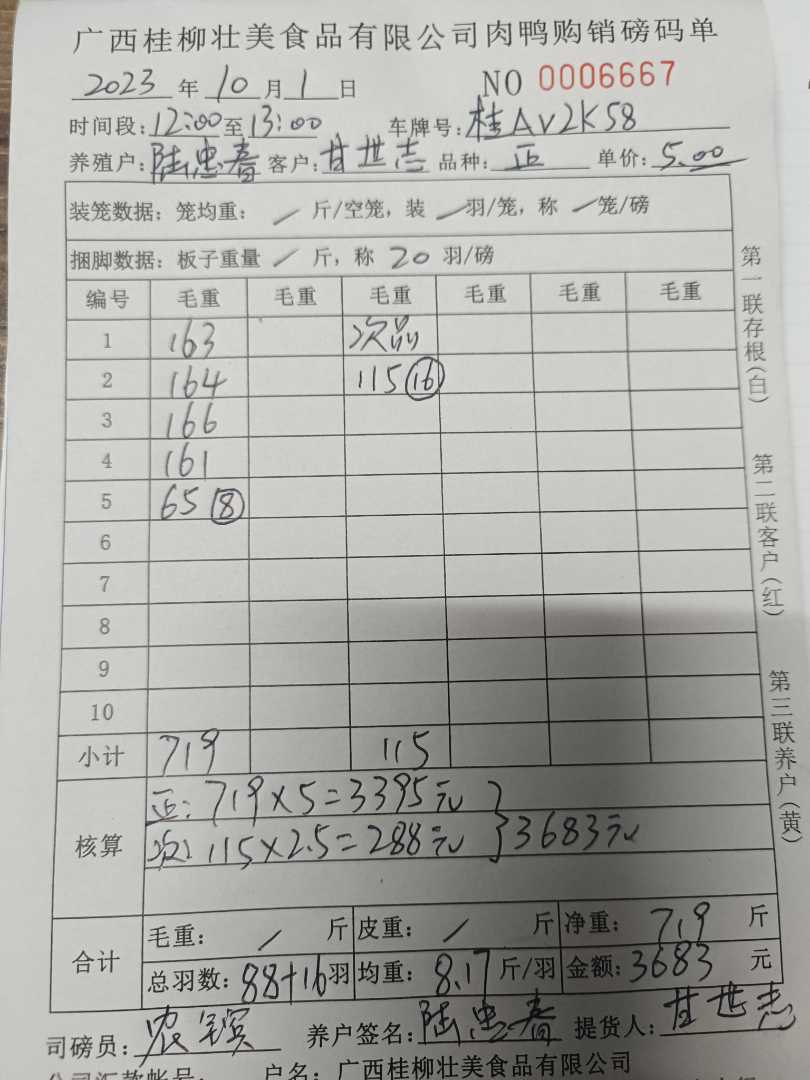 广西桂柳壮美食品有限公司肉鸭购销磅码单
2023 年 10 月 1 日 NO 0006667
时间段：12:00 至 13:00 车牌号：桂AV2K58
养殖户：陆忠春 客户：甘世志 品种：正 单价：5.00
装笼数据：笼均重： / 斤/空笼，装 / 羽/笼，称 / 笼/磅
捆脚数据：板子重量 / 斤，称 20 羽/磅
编号 毛重 毛重 毛重 毛重 毛重 毛重
1 163 次品
2 164 115⑯
3 166
4 161
5 65⑧
6
7
8
9
10
小计 719 115
核算
正：719×5=3395元
次：115×2.5=288元
3683元
合计
毛重： / 斤 皮重： / 斤 净重： 719 斤
总羽数：88+16羽 均重：8.17斤/羽 金额：3683 元
司磅员： 养户签名：陆忠春 提货人：甘世志
户名：广西桂柳壮美食品有限公司
第一联存根（白）
第二联客户（红）
第三联养户（黄）